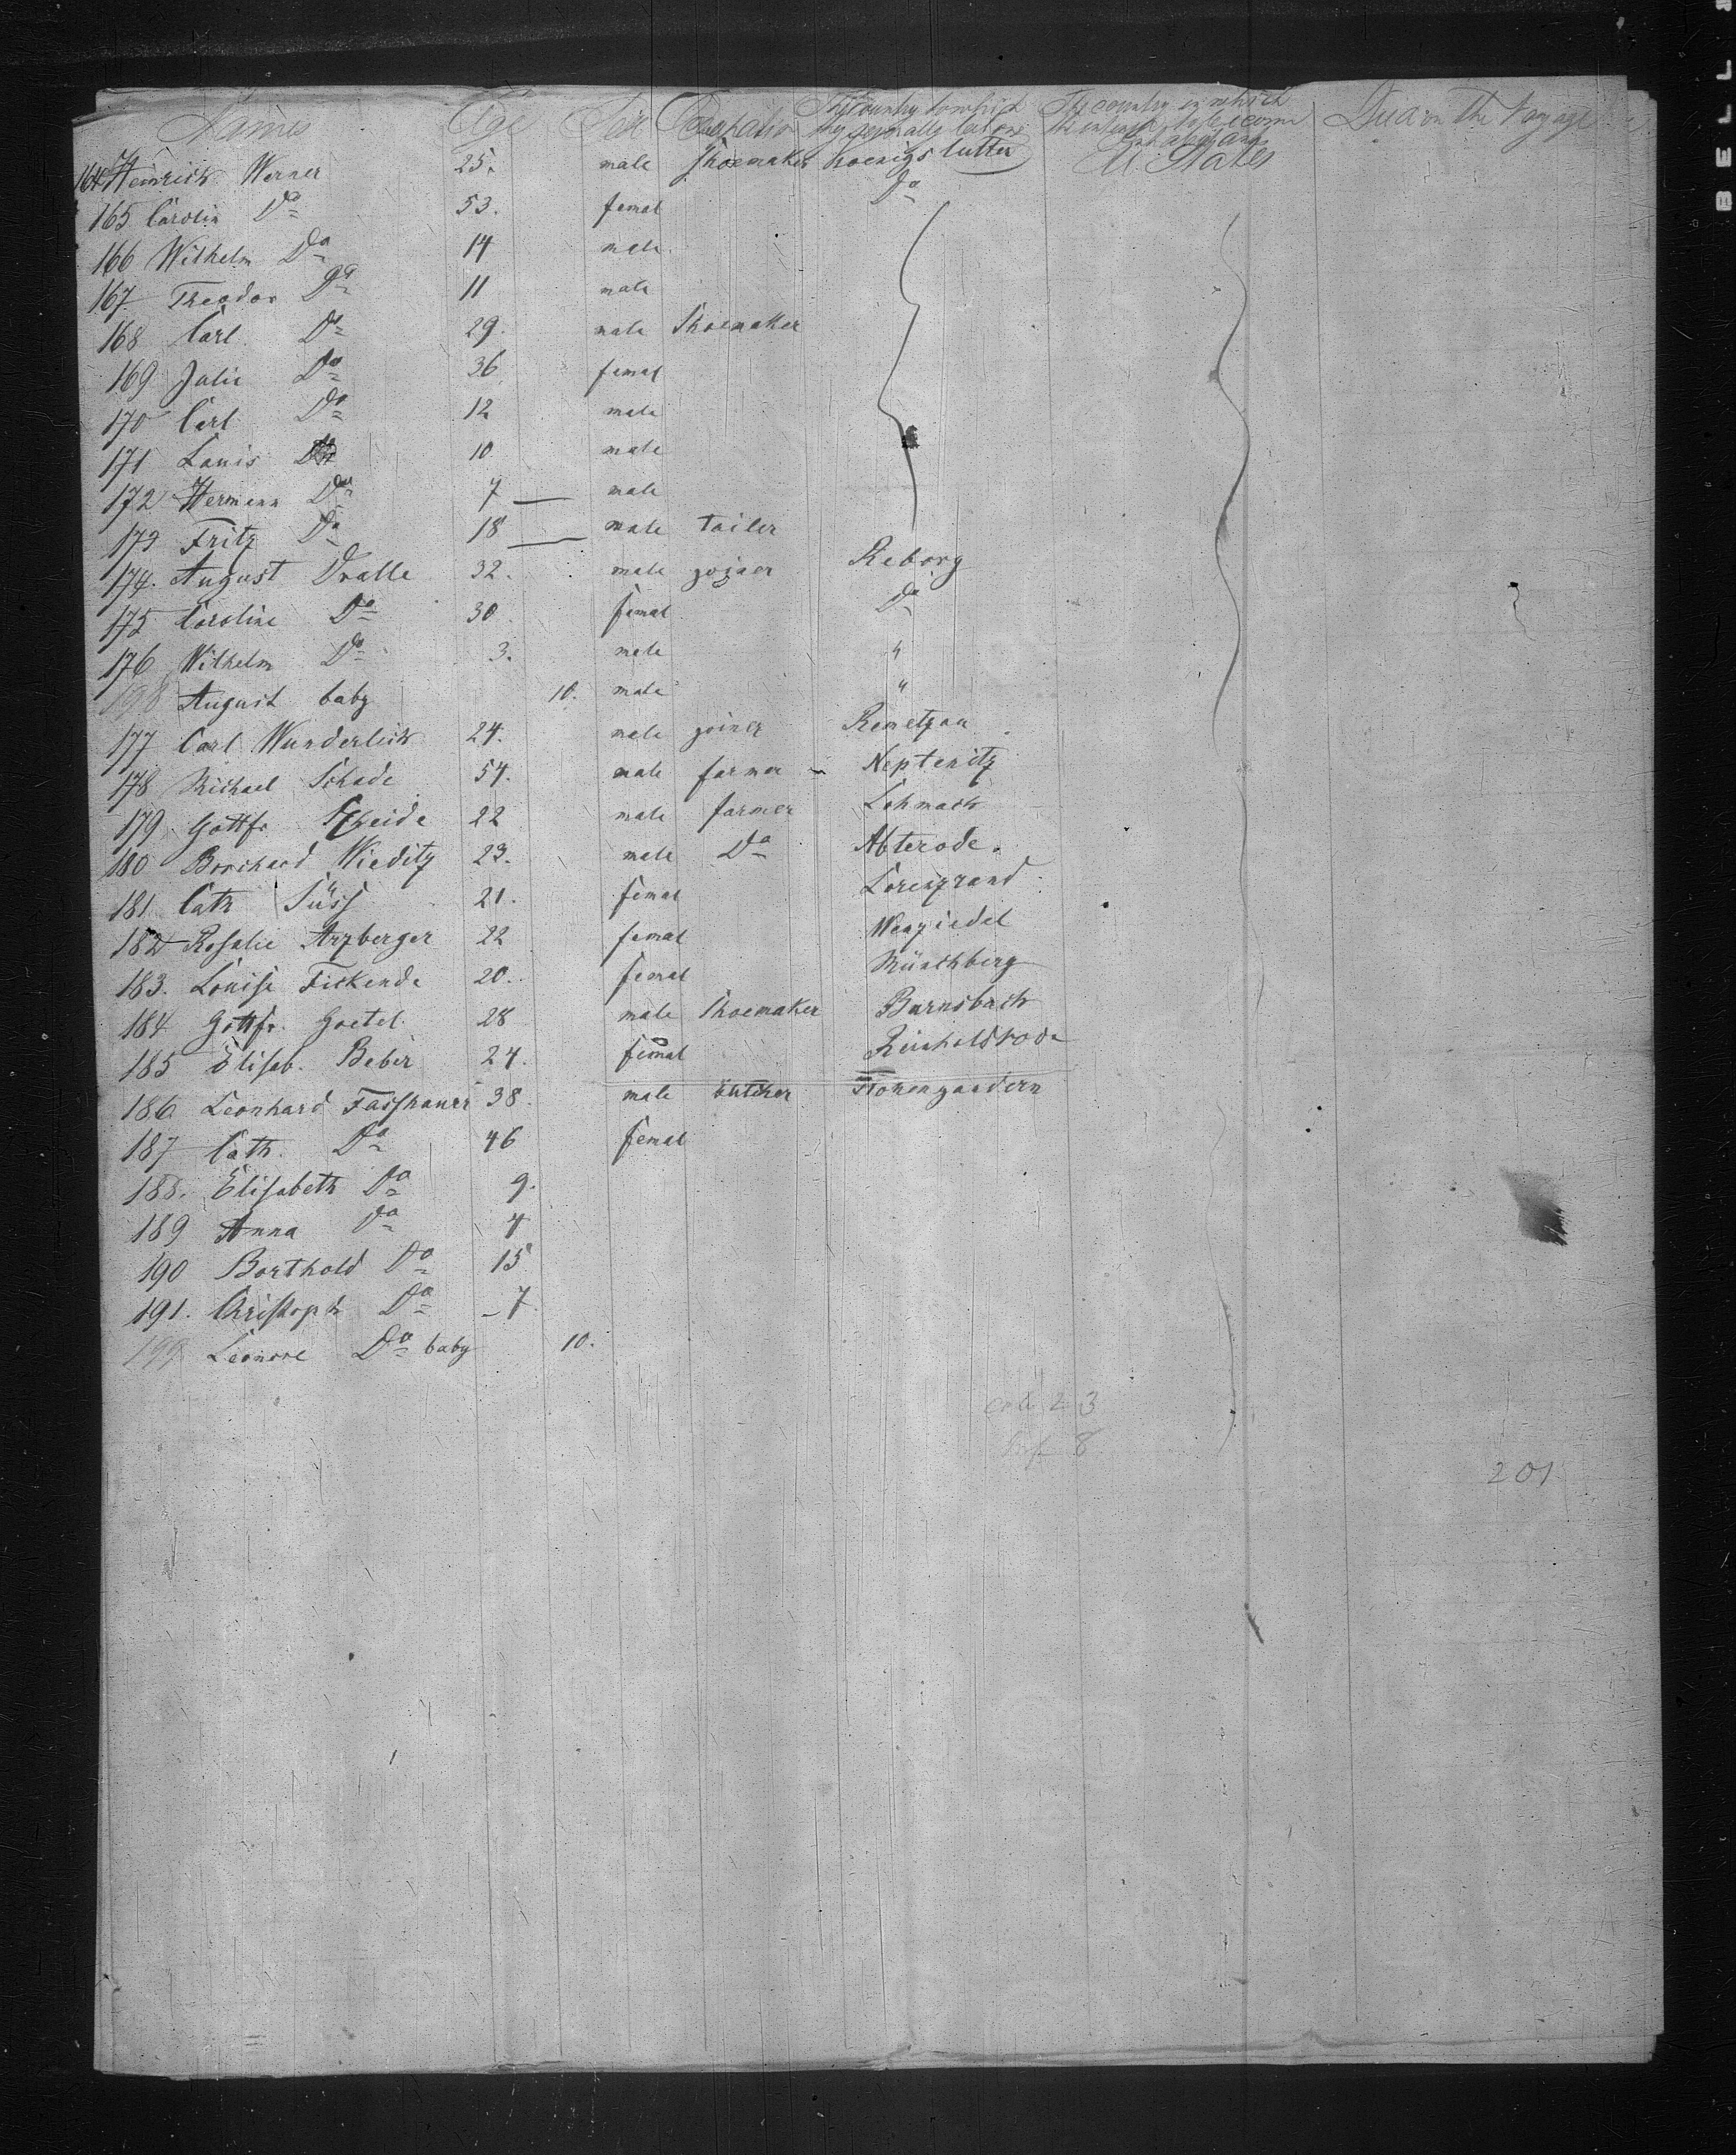 Names Age Sex Occupation The Country to which they severally belong The country in which they intend to become inhabitants Died on the Voyage
164 Heinrich Werner 25. male Shoemaker Koenigslutter U. States
165 Carolin Do 53. femal Do
166 Wilhelm Do 14 male
167 Theodor Do 11 male
168 Carl Do 29. male Shoemaker
169 Julie Do 36 femal
170 Carl Do 12 male
171 Louis Do 10 male
172 Hermann Do 7 male
173 Fritz Do 18 male tailer
174. August Dralle 32. male joiner Reborg
175 Caroline Do 30. femal Do
176 Wilhelm Do 3. male "
198 August baby 10. male "
177 Carl Wunderlich 24. male joiner Remetzau
178 Michael Schade 54. male farmer Neptenitz
179 Gottfr. Scheide 22 male farmer Lohmach
180 Borchard Wieditz 23. male Do Abterode.
181 Cath Süss 21. femal Lorenzrand
182 Rosalie Arzberger 22 femal Wenziedel
183. Louise Fickende 20. femal Münchberg
184 Gottfr. Goetel 28 male Shoemaker Barnsbach
185 Elisab. Beber 24. femal Reicholdsrode
186 Leonhard Fasshauer 38. male butcher
187 Cath. Do 46 femal
188. Elisabeth Do 9.
189 Anna Do 4
190 Borthold Do 15
191. Christoph Do 7
199 Leonore Do baby 10.
23
8
201
BELL